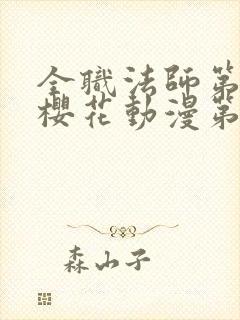 全職法師第
櫻花動漫第
森山子